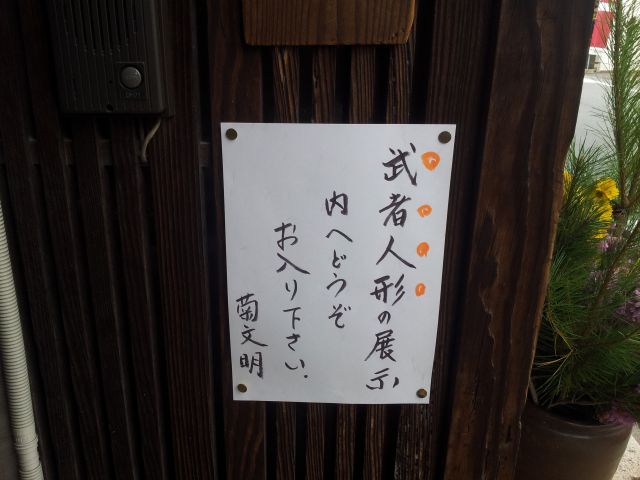 武者人形の展示
内へどうぞ
お入り下さい.
菊文明